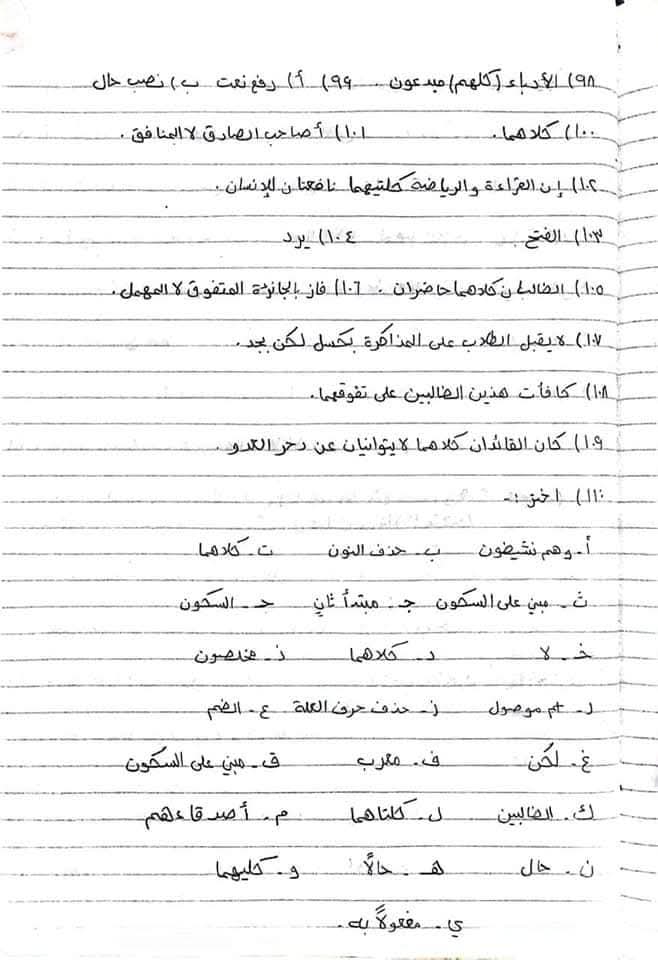 ٩٨) الأدباء (كلهم) مبدعون . ٩٩) أ) رفع نعت ب) نصب حال
١٠٠) كلاهما. ١٠١) أصاحب الصادق لا المنافق.
١٠٢) إن القراءة والرياضة كلتيهما نافعتان للإنسان.
١٠٣) الفتح ١٠٤) يرد
١٠٥) الطالبان كلاهما حاضران . ١٠٦) فاز بالجائزة المتفوق لا المهمل.
١٠٧) لا يقبل الطلاب على المذاكرة بكسل لكن بجد.
١٠٨) كافأت هذين الطالبين على تفوقهما.
١٠٩) كان القائدان كلاهما لا يتوانيان عن دحر العدو .
١١٠) اختر :-
أ- وهم نشيطون ب- حذف النون ت- كلاهما
ث- مبني على السكون ج- مبتدأ ثانٍ ح- السكون
خ- لا د- كلاهما ذ- مخلصون
ر- اسم موصول ز- حذف حرف العلة ع- الضم
غ- لكن ف- معرب ق- مبني على السكون
ك- الطالبين ل- كلتاهما م- أصدقاءهم
ن- حال هـ- حالًا و- كليهما
ي- مفعولًا به.